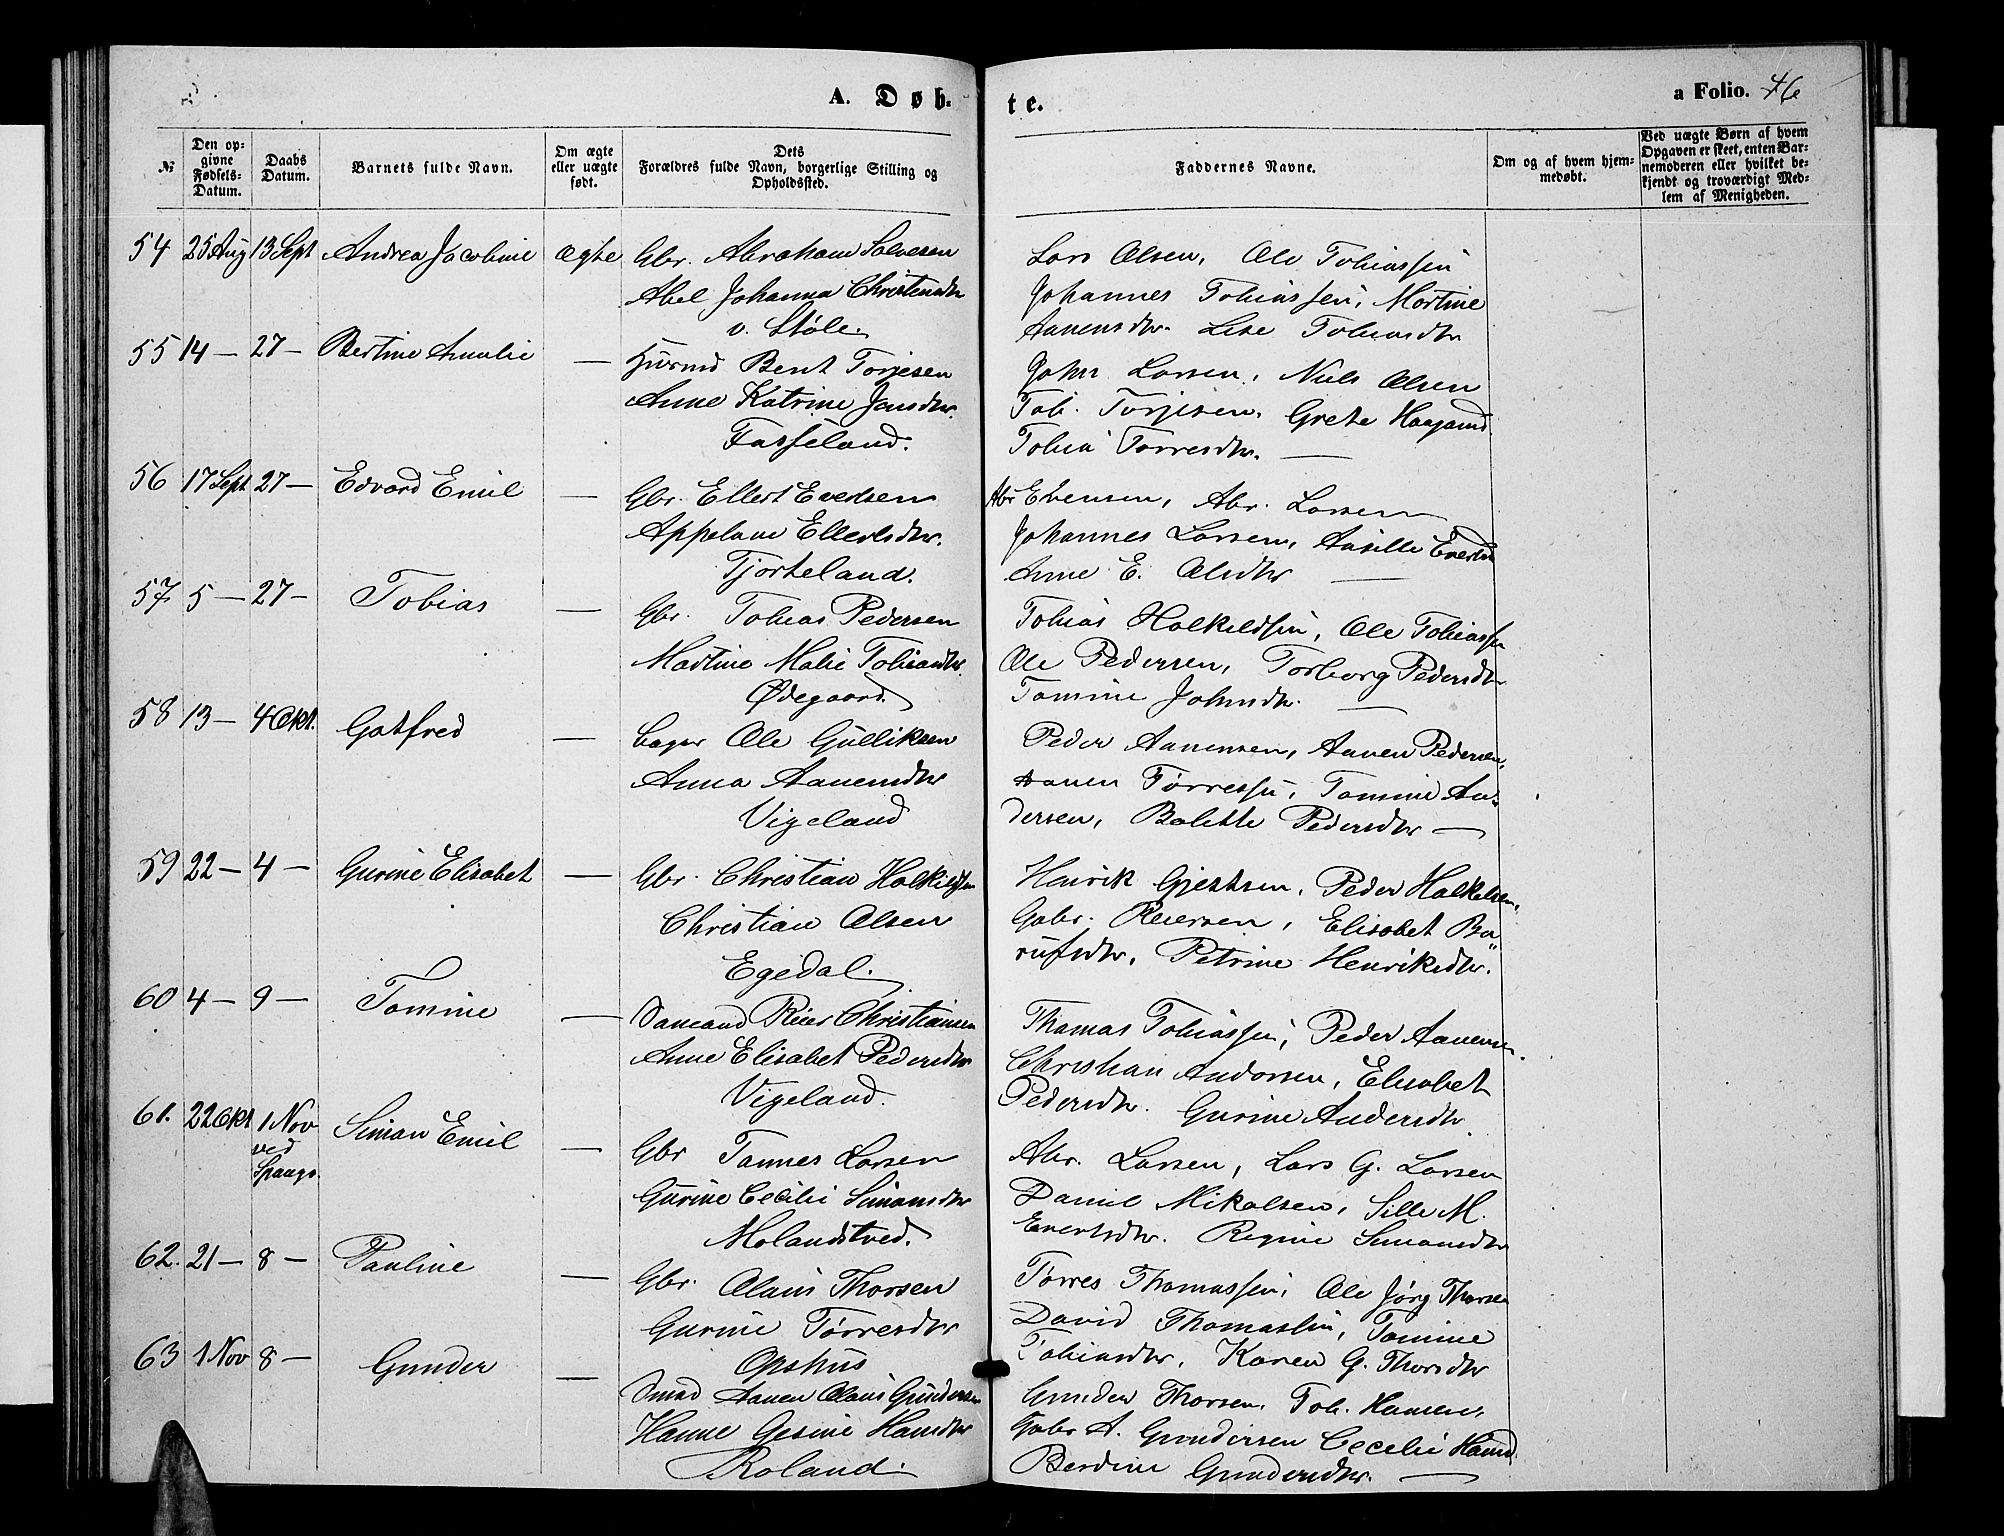 A. Døb-
te.
a Folio. 46
№
Den op-
givne
Fødsels-
Datum.
Daabs
Datum.
Barnets fulde Navn.
Om ægte
eller uægte
født.
Dets
Forældres fulde Navn, borgerlige Stilling og
Opholdssted.
Faddernes Navne.
Om og af hvem hjem-
medøbt.
Ved uægte Børn af hvem
Opgaven er skeet, enten Bar-
nemoderen eller hvilket be-
kjendt og troværdigt Med-
lem af Menigheden.
54 25 Aug 13 Sept Andrea Jacobine ægte Gbr. Abraham Salvesen
Abel Johanna Christensdtr
v. Støle.
Lars Olsen, Ole Tobiassen
Johannes Tobiassen, Martine
Aanensdtr. Lise Tobiasdtr
55 14 — 27 — Bertine Amalie — Huusmd Bent Torjesen
Anne Katrine Jensdtr.
Fasseland.
John Larsen, Niels Olsen
Tob. Torjesen, Grete Haagand
Tobia Torresdtr. —
56 17 Sept 27 — Edvard Emil — Gbr. Ellert Evertsen
Appelane Ellertsdtr.
Tjorteland.
Abr Evensen, Abr. Larsen
Johannes Larsen, Aasille Evertsd
Anne E. Olsdtr —
57 5 — 27 — Tobias — Gbr. Tobias Pedersen
Martine Malie Tobiasdtr.
Ødegaard
Tobias Halkildsen, Ole Tobiassen
Ole Pedersen, Torborg Pedersdtr
Tomine Johnsdtr. —
58 13 — 4 Okt. Gotfred — Bager Ole Gulliksen
Anna Aanensdtr
Vigeland
Peder Aanensen, Aanen Pedersen,
Aanen Tørressen, Tomine An-
dersen, Bolette Pedersdtr —
59 22 — 4 — Gurine Elisabet — Gbr. Christian Halkildsen
Christian Olsen
Egedal.
Henrik Gjertsen, Peder Halkelsen,
Gabr. Reiersen, Elisabet Ba
rufsdtr, Petrine Henriksdtr.
60 4 — 9 — Tomine — Sømand Reier Christiansen
Anne Elisabet Pedersdtr
Vigeland.
Thomas Tobiassen, Peder Aanensen.
Christian Andersen, Elisabet
Pedersdtr. Gurine Andersdtr.
61. 22 Okt 1 Nov Simon Emil — Gbr Tønnes Larsen
ved
Spangr.
Gurine Cecilie Simonsdtr
Molandstved.
Abr. Larsen, Lars G. Larsen
Daniel Mikalsen, Sille M.
Evertsdtr. Regine Simonsdtr
62. 21 — 8 — Pauline — Gbr. Olaus Thorsen
Gurine Tørresdtr
Opshus
Tørres Thomassen, Ole Jørg Thorsen
David Thomassen, Tomine
Tobiasdtr, Karen G. Thorsdtr
63 1 Nov 8 — Gunder — Smed Aanen Olaus Gundersen
Hanne Gesine Hansdtr
Roland.
Gunder Thorsen, Tob. Hansen,
Gabr A. Gundersen Cecelie Hansd.
Berdine Gundersdtr. —